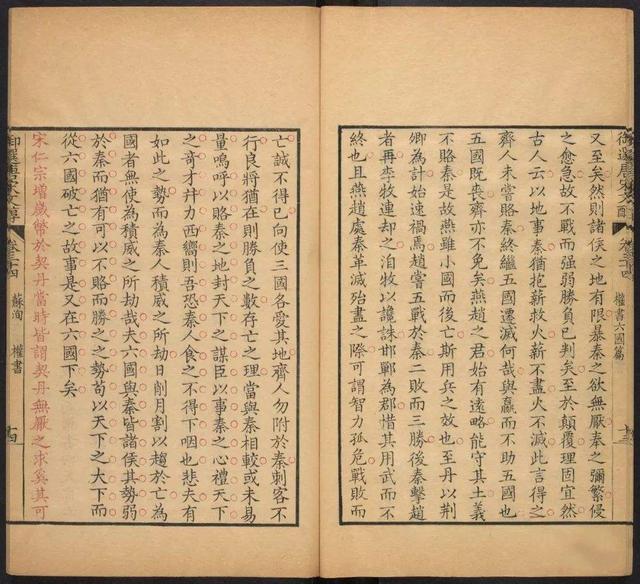 御選唐宋文醇 卷三十四 權書六國篇 十三
又至矣然則諸侯之地有限暴秦之欲無厭奉之彌繁侵
之愈急故不戰而强弱勝負已判矣至於顛覆理固宜然
古人云以地事秦猶抱薪救火薪不盡火不滅此言得之
齊人未嘗賂秦終繼五國遷滅何哉與嬴而不助五國也
五國既喪齊亦不免矣燕趙之君始有逺略能守其土義
不賂秦是故燕雖小國而後亡斯用兵之效也至丹以荆
卿為計始速禍焉趙嘗五戰於秦二敗而三勝後秦擊趙
者再李牧連却之洎牧以讒誅邯鄲為郡惜其用武而不
終也且燕趙處秦革滅殆盡之際可謂智力孤危戰敗而
亡誠不得已向使三國各愛其地齊人勿附於秦刺客不
行良將猶在則勝負之數存亡之理當與秦相較或未易
量嗚呼以賂秦之地封天下之謀臣以事秦之心禮天下
之奇才并力西嚮則吾恐秦人食之不得下咽也悲夫有
如此之勢而為秦人積威之所劫日削月割以趨於亡為
國者無使為積威之所劫哉夫六國與秦皆諸侯其勢弱
於秦而猶有可以不賂而勝之之勢苟以天下之大下而
從六國破亡之故事是又在六國下矣
宋仁宗增歲幣於契丹當時皆謂契丹無厭之求奚其可
御選唐宋文醇 卷三十四 蘇洵 權書 十四